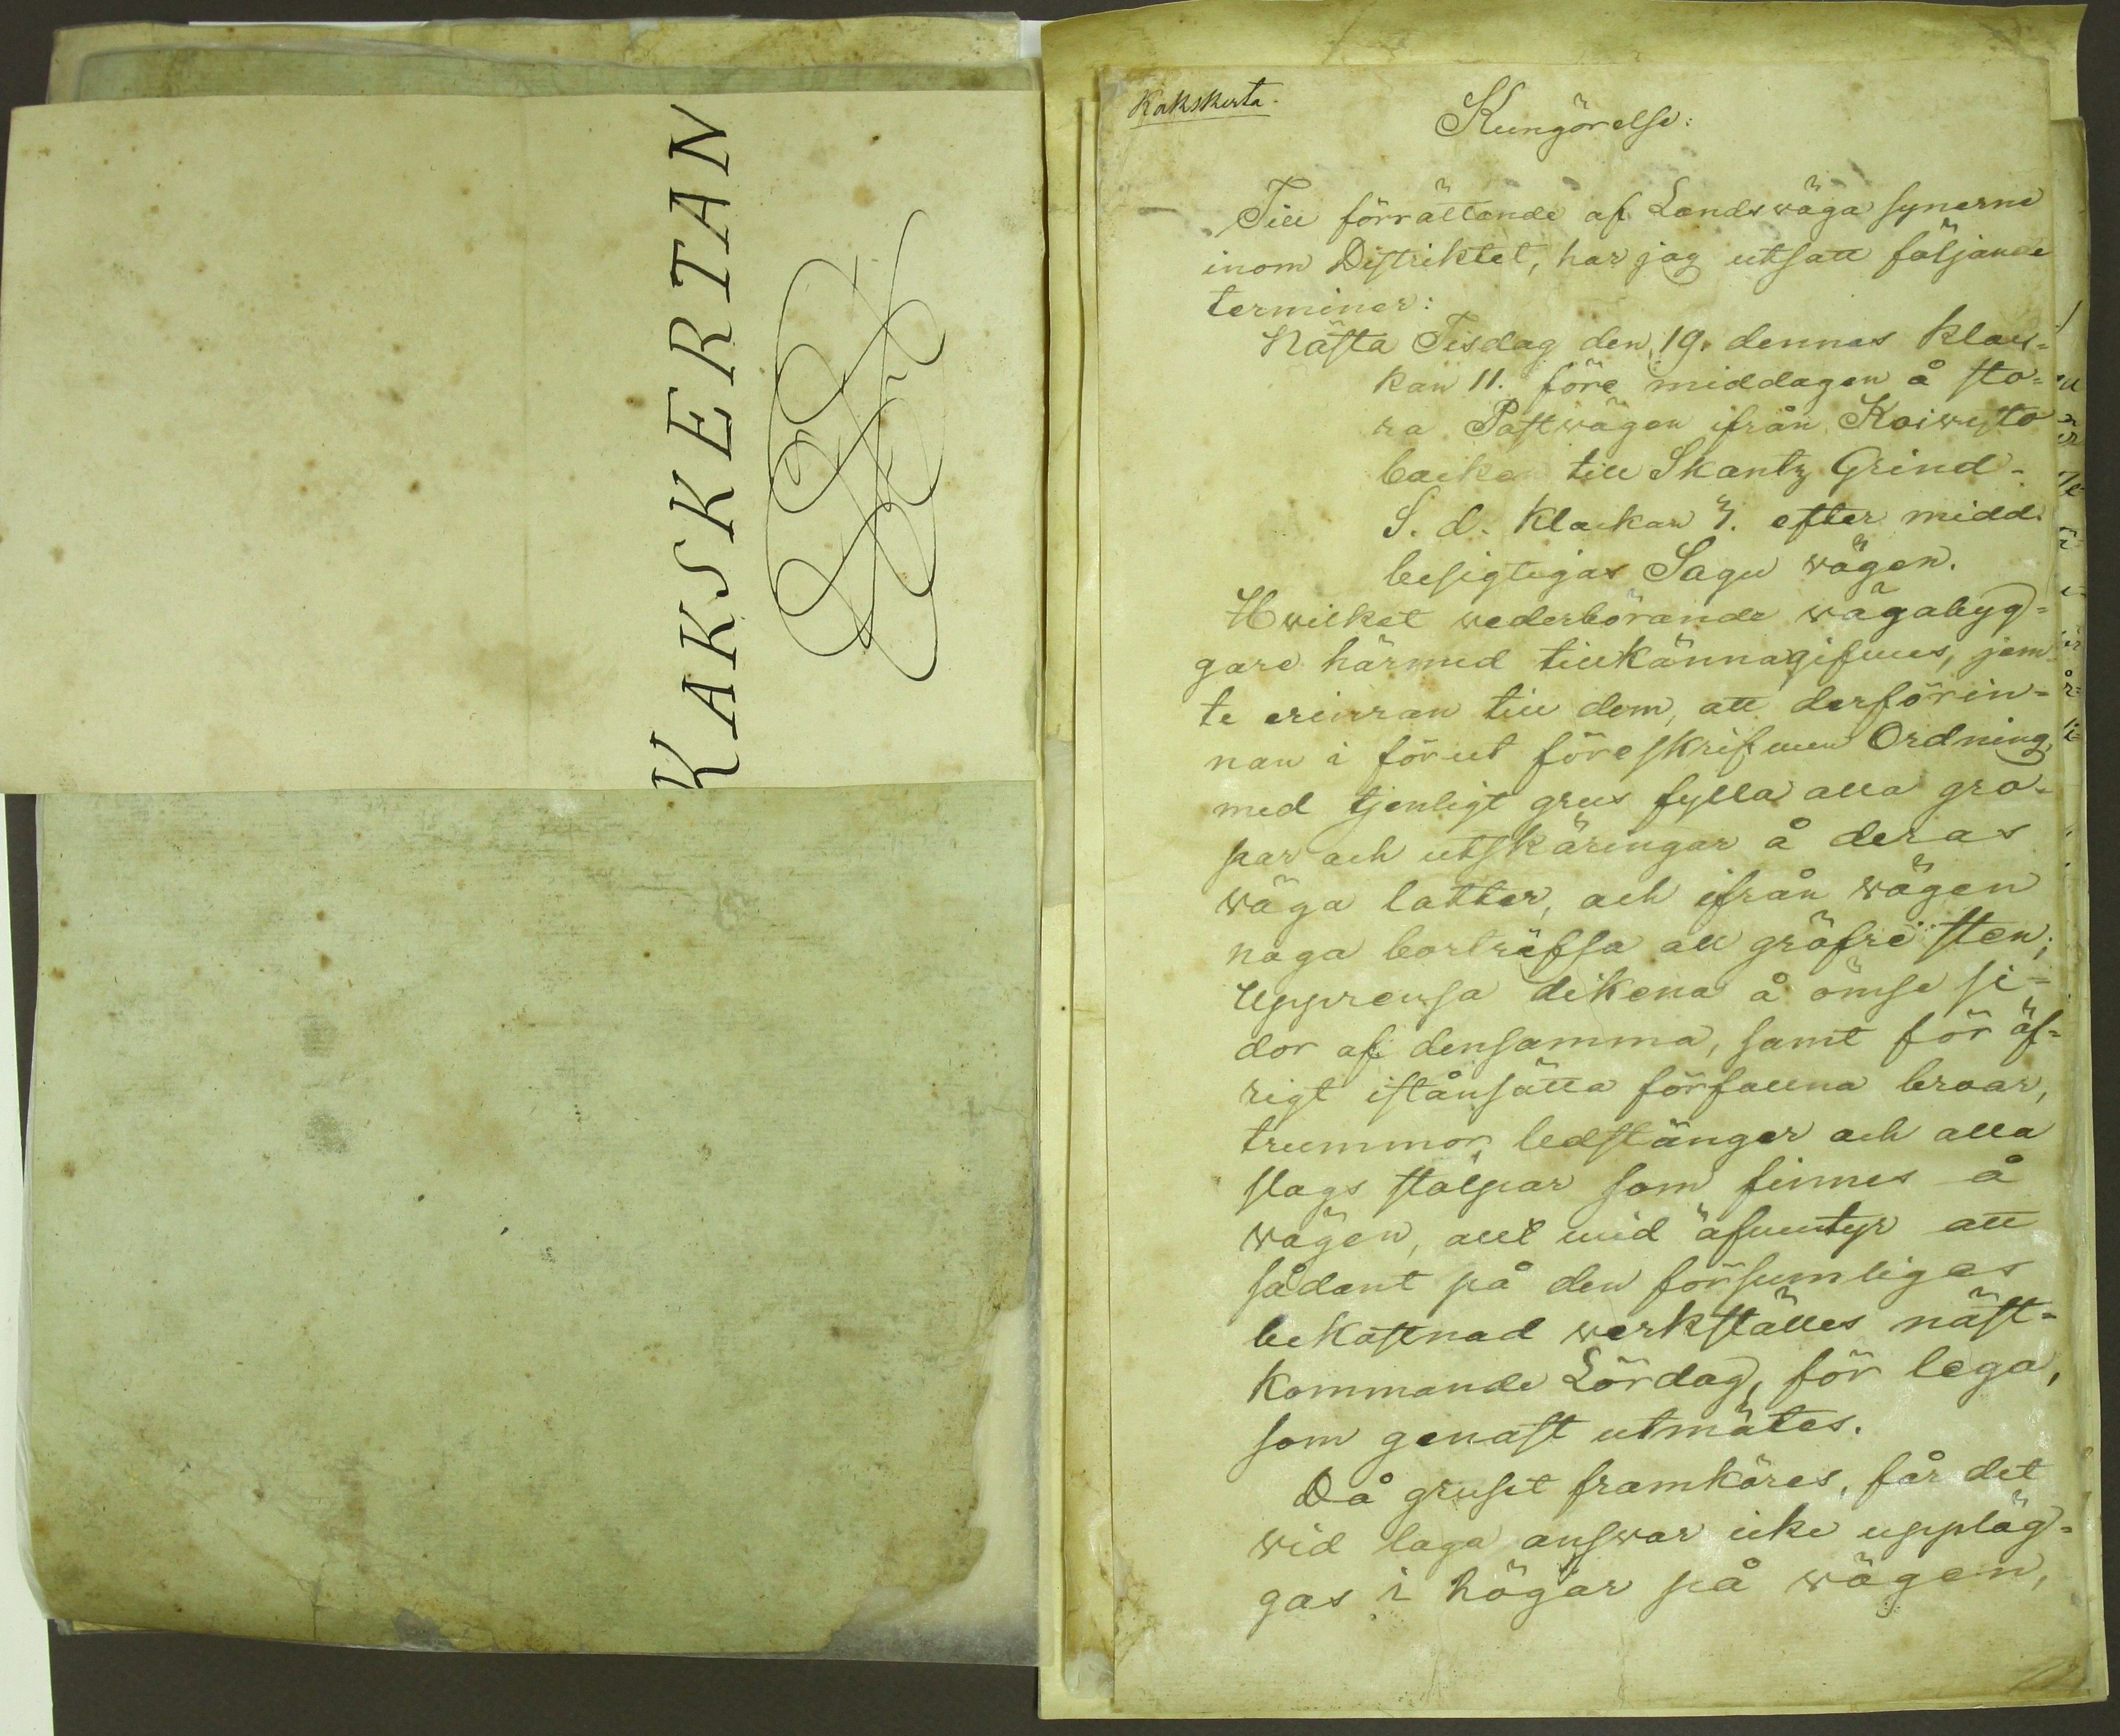 KAKSKERTAN
Kakskerta.
Kungörelse:
Till förrättande af Landsväga synerne
inom Distriktet, har jag utsatt följande
terminer:
Nästa Tisdag den 19. dennes kloc=
kan 11. före middagen å sto=
ra Postvägen ifrån Koivisto
backen till Skantz Grind.
S. d. klockan 3. efter midd.
besigtigas Sagu vägen.
Hvilket vederbörande vägabyg=
gare härmed tillkännagifves, jem=
te erinran till dem, att derförin=
nan i förut föreskrifven Ordning,
med tjenligt grus fylla alla gro=
par och utskäringar å deras
väga lotter, och ifrån vägen
noga borträfsa all gröfre sten;
upprensa dikena å ömse si=
dor af densamma, samt för öf=
rigt iståndsätta förfallna broar,
trummor, ledstänger och alla
slags stolpar som finnes å
vägen, allt vid äfventyr att
sådant på den försumliges
bekostnad verkställes näst=
kommande Lördag, för lega,
som genast utmätes.
Då gruset framköres, får det
vid laga answar icke uppläg=
gas i högar på vägen,